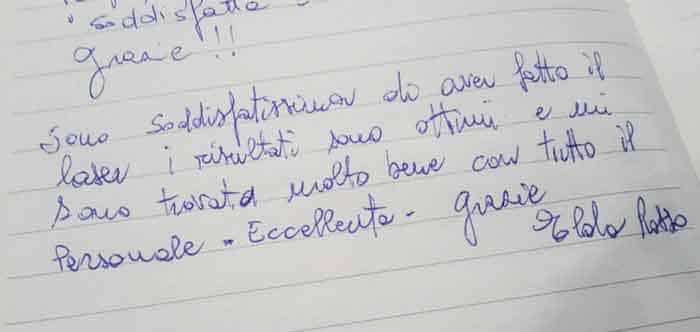 soddisfatta
grazie!!
Sono soddisfatissima di aver fatto il
laser i risultati sono ottimi e mi
sono trovata molto bene con tutto il
Personale. Eccellente. grazie